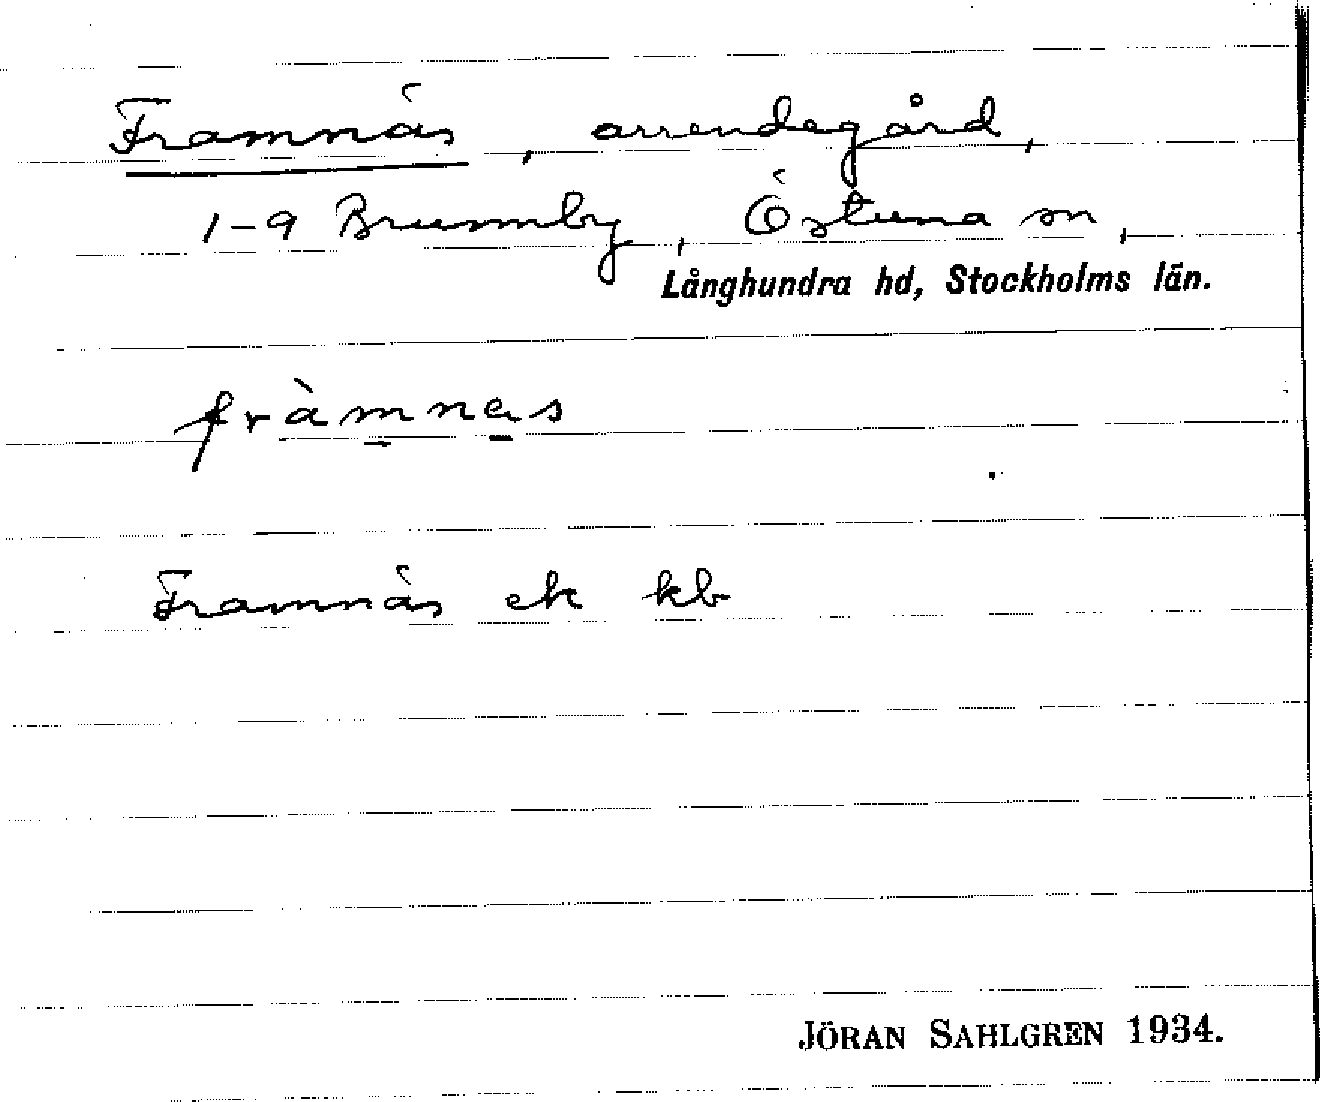 Framnäs, arrendegård,
1-9 Brunnby, Östuna sn,
Långhundra hd, Stockholms län.
fràmnes
Framnäs ek kb
JÖRAN SAHLGREN 1934.